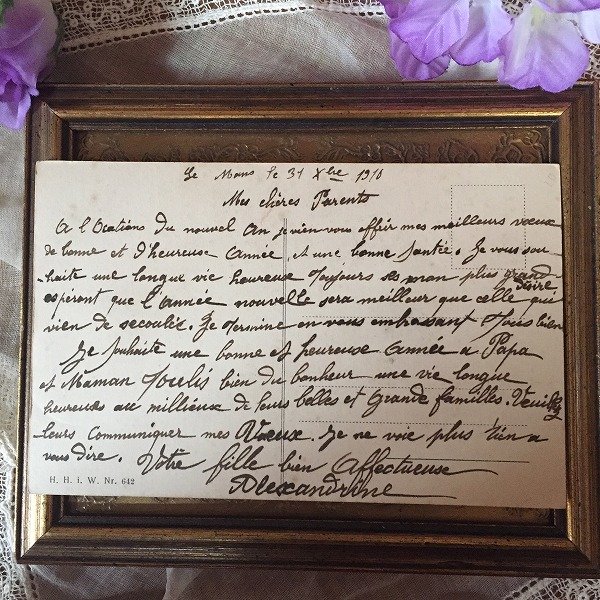 Le Mans le 31 Xbre 1910
Mes chères Parents
A l'Ocations du nouvel An je vien vous offrir mes meilleurs vœux
de bonne et d'heureuse Année, et une bonne santée. Je vous sou-
haite une longue vie heureuse Toujours ses mon plus grand
désire
espérant que l'année nouvelle sera meilleur que celle qui
vien de secoulis. Je termine en vous embrassant Tous bien
Je souhaite une bonne et heureuse Année a Papa
et Maman Toulis bien du bonheur une vie longue
heureuses au millieux de leurs belles et Grande familles. Veuillez
leurs communiquer mes Vœeux. Je ne voie plus rien a
vous dire. Votre fille bien Affectueuse
Alexandrine
H. H. i. W. Nr. 642